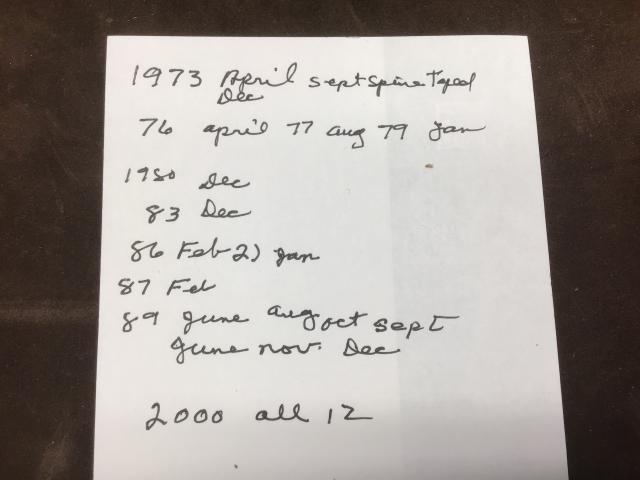 1973 April sept spine Taped
Dec
76 april 77 aug 79 Jan
1980 Dec
83 Dec
86 Feb 2) Jan
87 Feb
89 June aug oct sept
June nov. Dec
2000 all 12